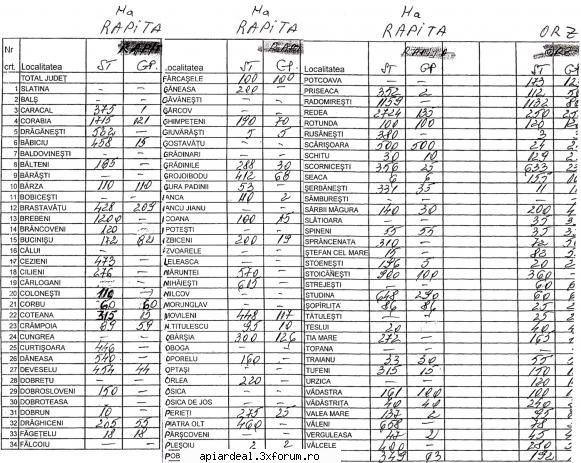 Ha Ha Ha
RAPiTA RAPiTA RAPiTA ORZ
Nr
crt. Localitatea ST GP. Localitatea ST GP. Localitatea ST GP. ST
TOTAL JUDEȚ — — FĂRCAȘELE 100 100 POTCOAVA — — 173
1 SLATINA - - GĂNEASA 200 — PRISEACA 352 2 112
2 BALȘ - - GĂVĂNEȘTI - - RADOMIREȘTI 1159 — 1132
3 CARACAL 375 1 GÂRCOV - - REDEA 2724 135 250
4 CORABIA 1715 121 GHIMPEȚENI 190 70 ROTUNDA 100 100 120
5 DRĂGĂNEȘTI 502 — GIUVĂRĂȘTI 5 5 RUSĂNEȘTI 380 - 3
6 BĂBICIU 458 15 GOSTAVĂȚU SCĂRIȘOARA 500 500 24
7 BALDOVINEȘTI - - GRĂDINARI - - SCHITU 30 10 129
8 BĂLTENI 165 — GRĂDINILE 288 30 SCORNICEȘTI 356 25 633
9 BĂRĂȘTI - - GROJDIBODU 412 68 SEACA 6 6
10 BÂRZA 110 110 GURA PADINII 53 — ȘERBĂNEȘTI 331 35 11
11 BOBICEȘTI - - IANCA 110 2 SÂMBUREȘTI - -
12 BRASTAVĂȚU 428 209 IANCU JIANU - - SÂRBII MĂGURA 140 30 200
13 BREBENI 1200 — ICOANA 100 15 SLĂTIOARA - - 35
14 BRÂNCOVENI 120 - IPOTEȘTI - - SPINENI 55 55 35
15 BUCINIȘU 172 82 IZBICENI 200 19 SPRÂNCENATA 310 - 72
16 CĂLUI - - IZVOARELE - - ȘTEFAN CEL MARE 15 - 83
17 CEZIENI 473 — LELEASCA - - STOENEȘTI 196 5 20
18 CILIENI 276 — MĂRUNȚEI 570 - STOICĂNEȘTI 900 100 360
19 CÂRLOGANI - - MIHĂEȘTI 615 - STREJEȘTI - - 60
20 COLONEȘTI 110 - MILCOV - - STUDINA 648 290 60
21 CORBU 60 60 MORUNGLAV - - ȘOPÎRLIȚA 86 86 25
22 COTEANA 315 15 MOVILENI 448 117 TĂTULEȘTI - - 25
23 CRÂMPOIA 89 59 N.TITULESCU 95 10 TESLUI 20 - 40
24 CUNGREA - - OBÂRȘIA 300 126 TIA MARE 272 - 165
25 CURTIȘOARA 446 — OBOGA - - TOPANA - -
26 DĂNEASA 540 — OPORELU 160 — TRAIANU 33 30 55
27 DEVESELU 454 44 OPTAȘI - - TUFENI 315 15 150
28 DOBREȚU - - ORLEA 220 — URZICA - - 120
29 DOBROSLOVENI 150 — OSICA VĂDASTRA 161 100 100
30 DOBROTEASA - - OSICA DE JOS - - VĂDĂSTRIȚA 40 40 240
31 DOBRUN 10 - PERIEȚI 275 25 VALEA MARE 137 2 95
32 DRĂGHICENI 205 55 PIATRA OLT 460 — VĂLENI 658 - 78
33 FĂGEȚELU 18 18 PÂRȘCOVENI - - VERGULEASA 47 2 45
34 FĂLCOIU - - PLEȘOIU 2 2 VÂLCELE 400 - 250
POB 349 63 192
apiardeal.3xforum.ro